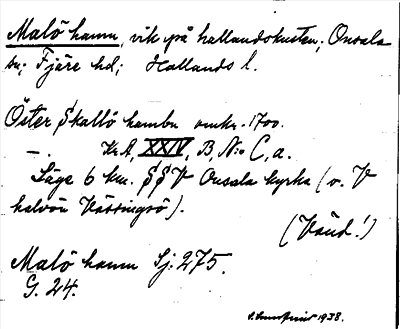 Malö hamn, vik på hallandskusten; Onsala
sn; Fjäre hd; Hallands l.
Öster Skallö hambn omkr. 1700.
—. Kr A, XXIV, B, N:o C, a.
Läge 6 km. S S V Onsala kyrka (o. V
halvön Vässingsö).
(Vänd!)
Malö hamn Sj. 275.
G. 24.
1938.